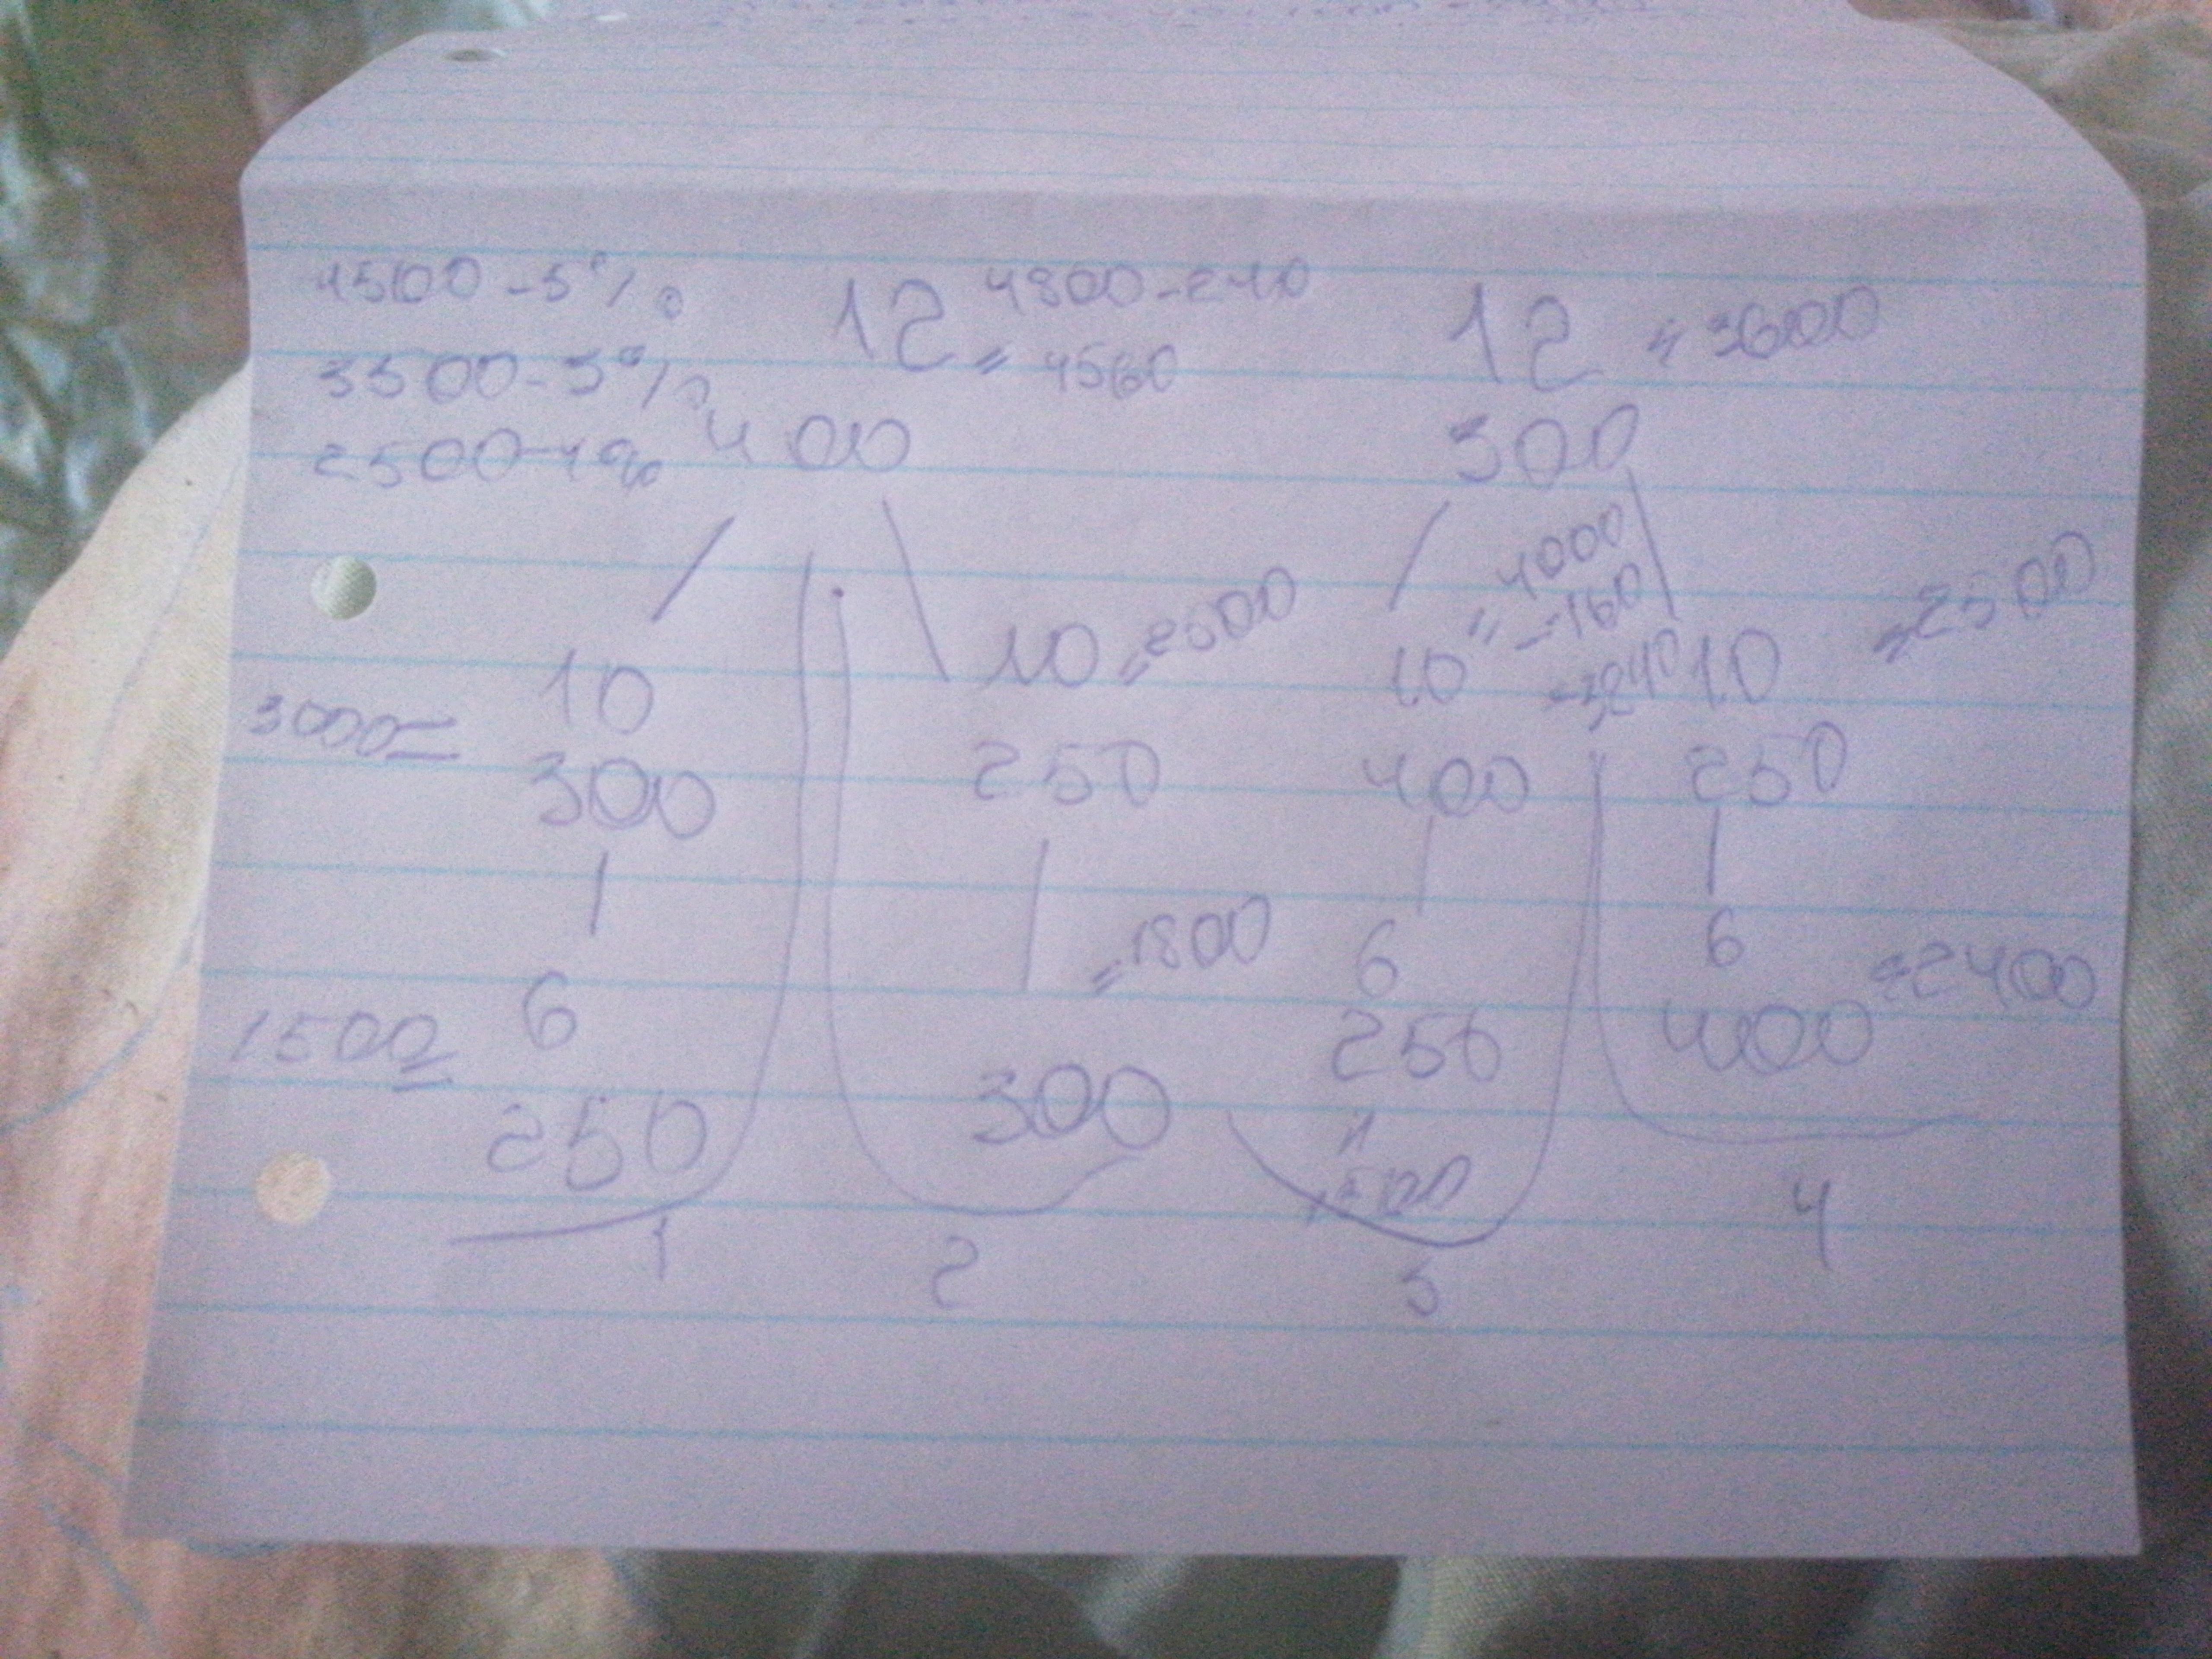 4500-5%
3500-3%
2500-1%
12
4800-240
= 4560
400
12 = 3600
300
10
300
3000=
10 = 2500
250
10
= 4000
-160
400
10 = 2500
250
6
250
1500=
= 1800
300
6
250
=
1500
6
400 = 2400
1
2
3
4